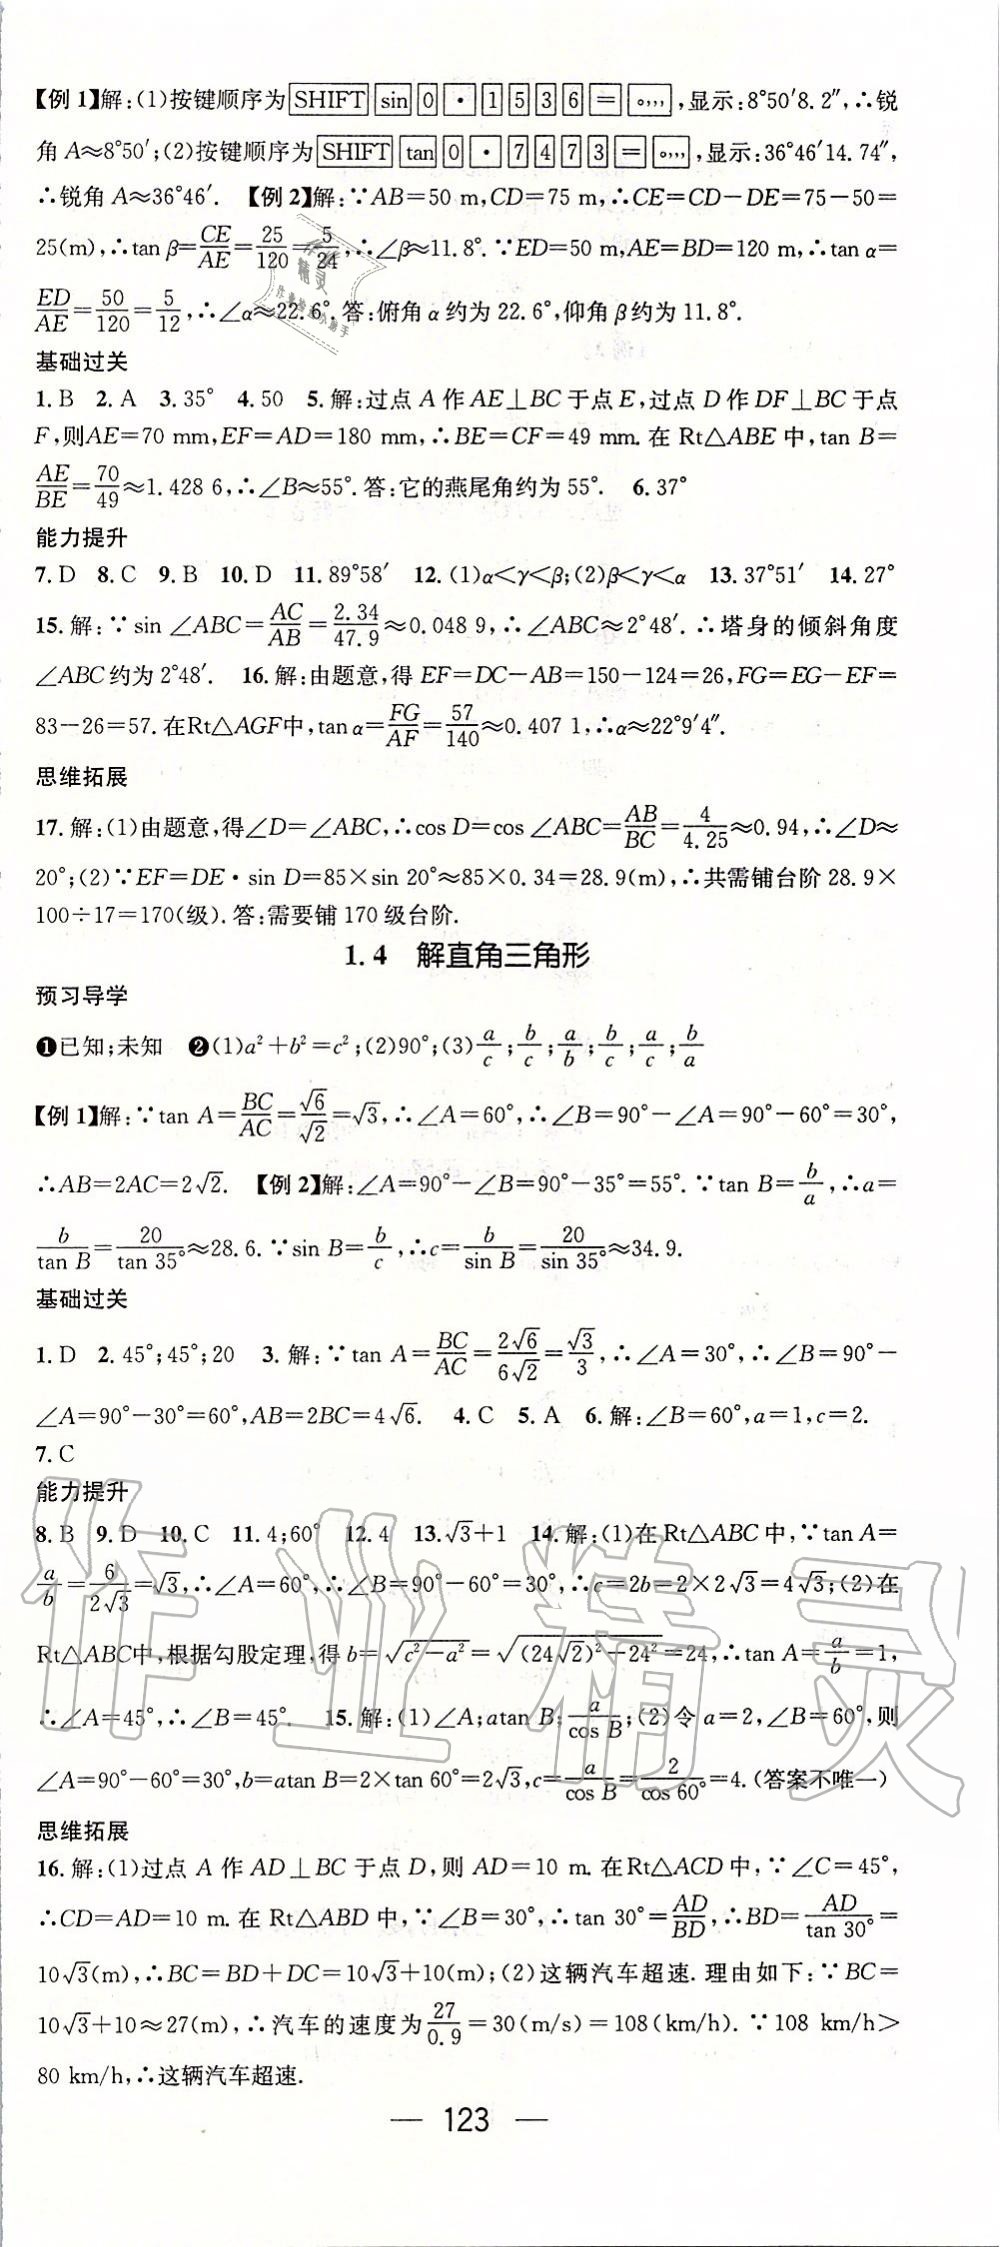 【例1】解:(1)按键顺序为 SHIFT sin 0 · 1 5 3 6 = °,,, ,显示:8°50′8.2″,∴锐
角A≈8°50′;(2)按键顺序为 SHIFT tan 0 · 7 4 7 3 = °,,, ,显示:36°46′14.74″,
∴锐角A≈36°46′. 【例2】解:∵AB=50 m,CD=75 m,∴CE=CD-DE=75-50=
25(m),∴tan β=CE/AE=25/120=5/24,∴∠β≈11.8°.∵ED=50 m,AE=BD=120 m,∴tan α=
ED/AE=50/120=5/12,∴∠α≈22.6°.答:俯角α约为22.6°,仰角β约为11.8°.
基础过关
1.B 2.A 3.35° 4.50 5.解:过点A作AE⊥BC于点E,过点D作DF⊥BC于点
F,则AE=70 mm,EF=AD=180 mm,∴BE=CF=49 mm.在Rt△ABE中,tan B=
AE/BE=70/49≈1.428 6,∴∠B≈55°.答:它的燕尾角约为55°. 6.37°
能力提升
7.D 8.C 9.B 10.D 11.89°58′ 12.(1)α<γ<β;(2)β<γ<α 13.37°51′ 14.27°
15.解:∵sin ∠ABC=AC/AB=2.34/47.9≈0.048 9,∴∠ABC≈2°48′.∴塔身的倾斜角度
∠ABC约为2°48′. 16.解:由题意,得EF=DC-AB=150-124=26,FG=EG-EF=
83-26=57.在Rt△AGF中,tan α=FG/AF=57/140≈0.407 1,∴α≈22°9′4″.
思维拓展
17.解:(1)由题意,得∠D=∠ABC,∴cos D=cos ∠ABC=AB/BC=4/4.25≈0.94,∴∠D≈
20°;(2)∵EF=DE·sin D=85×sin 20°≈85×0.34=28.9(m),∴共需铺台阶28.9×
100÷17=170(级).答:需要铺170级台阶.
1.4 解直角三角形
预习导学
❶已知;未知 ❷(1)a²+b²=c²;(2)90°;(3)a/c;b/c;a/b;b/c;a/c;b/a
【例1】解:∵tan A=BC/AC=√6/√2=√3,∴∠A=60°,∴∠B=90°-∠A=90°-60°=30°,
∴AB=2AC=2√2. 【例2】解:∠A=90°-∠B=90°-35°=55°.∵tan B=b/a,∴a=
b/tan B=20/tan 35°≈28.6.∵sin B=b/c,∴c=b/sin B=20/sin 35°≈34.9.
基础过关
1.D 2.45°;45°;20 3.解:∵tan A=BC/AC=2√6/6√2=√3/3,∴∠A=30°,∴∠B=90°-
∠A=90°-30°=60°,AB=2BC=4√6. 4.C 5.A 6.解:∠B=60°,a=1,c=2.
7.C
能力提升
8.B 9.D 10.C 11.4;60° 12.4 13.√3+1 14.解:(1)在Rt△ABC中,∵tan A=
a/b=6/2√3=√3,∴∠A=60°,∴∠B=90°-60°=30°,∴c=2b=2×2√3=4√3;(2)在
Rt△ABC中,根据勾股定理,得b=√(c²-a²)=√((24√2)²-24²)=24,∴tan A=a/b=1,
∴∠A=45°,∴∠B=45°. 15.解:(1)∠A;atan B;a/cos B;(2)令a=2,∠B=60°,则
∠A=90°-60°=30°,b=atan B=2×tan 60°=2√3,c=a/cos B=2/cos 60°=4.(答案不唯一)
思维拓展
16.解:(1)过点A作AD⊥BC于点D,则AD=10 m.在Rt△ACD中,∵∠C=45°,
∴CD=AD=10 m.在Rt△ABD中,∵∠B=30°,∴tan 30°=AD/BD,∴BD=AD/tan 30°=
10√3(m),∴BC=BD+DC=10√3+10(m);(2)这辆汽车超速.理由如下:∵BC=
10√3+10≈27(m),∴汽车的速度为27/0.9=30(m/s)=108(km/h).∵108 km/h>
80 km/h,∴这辆汽车超速.
— 123 —
作业精灵